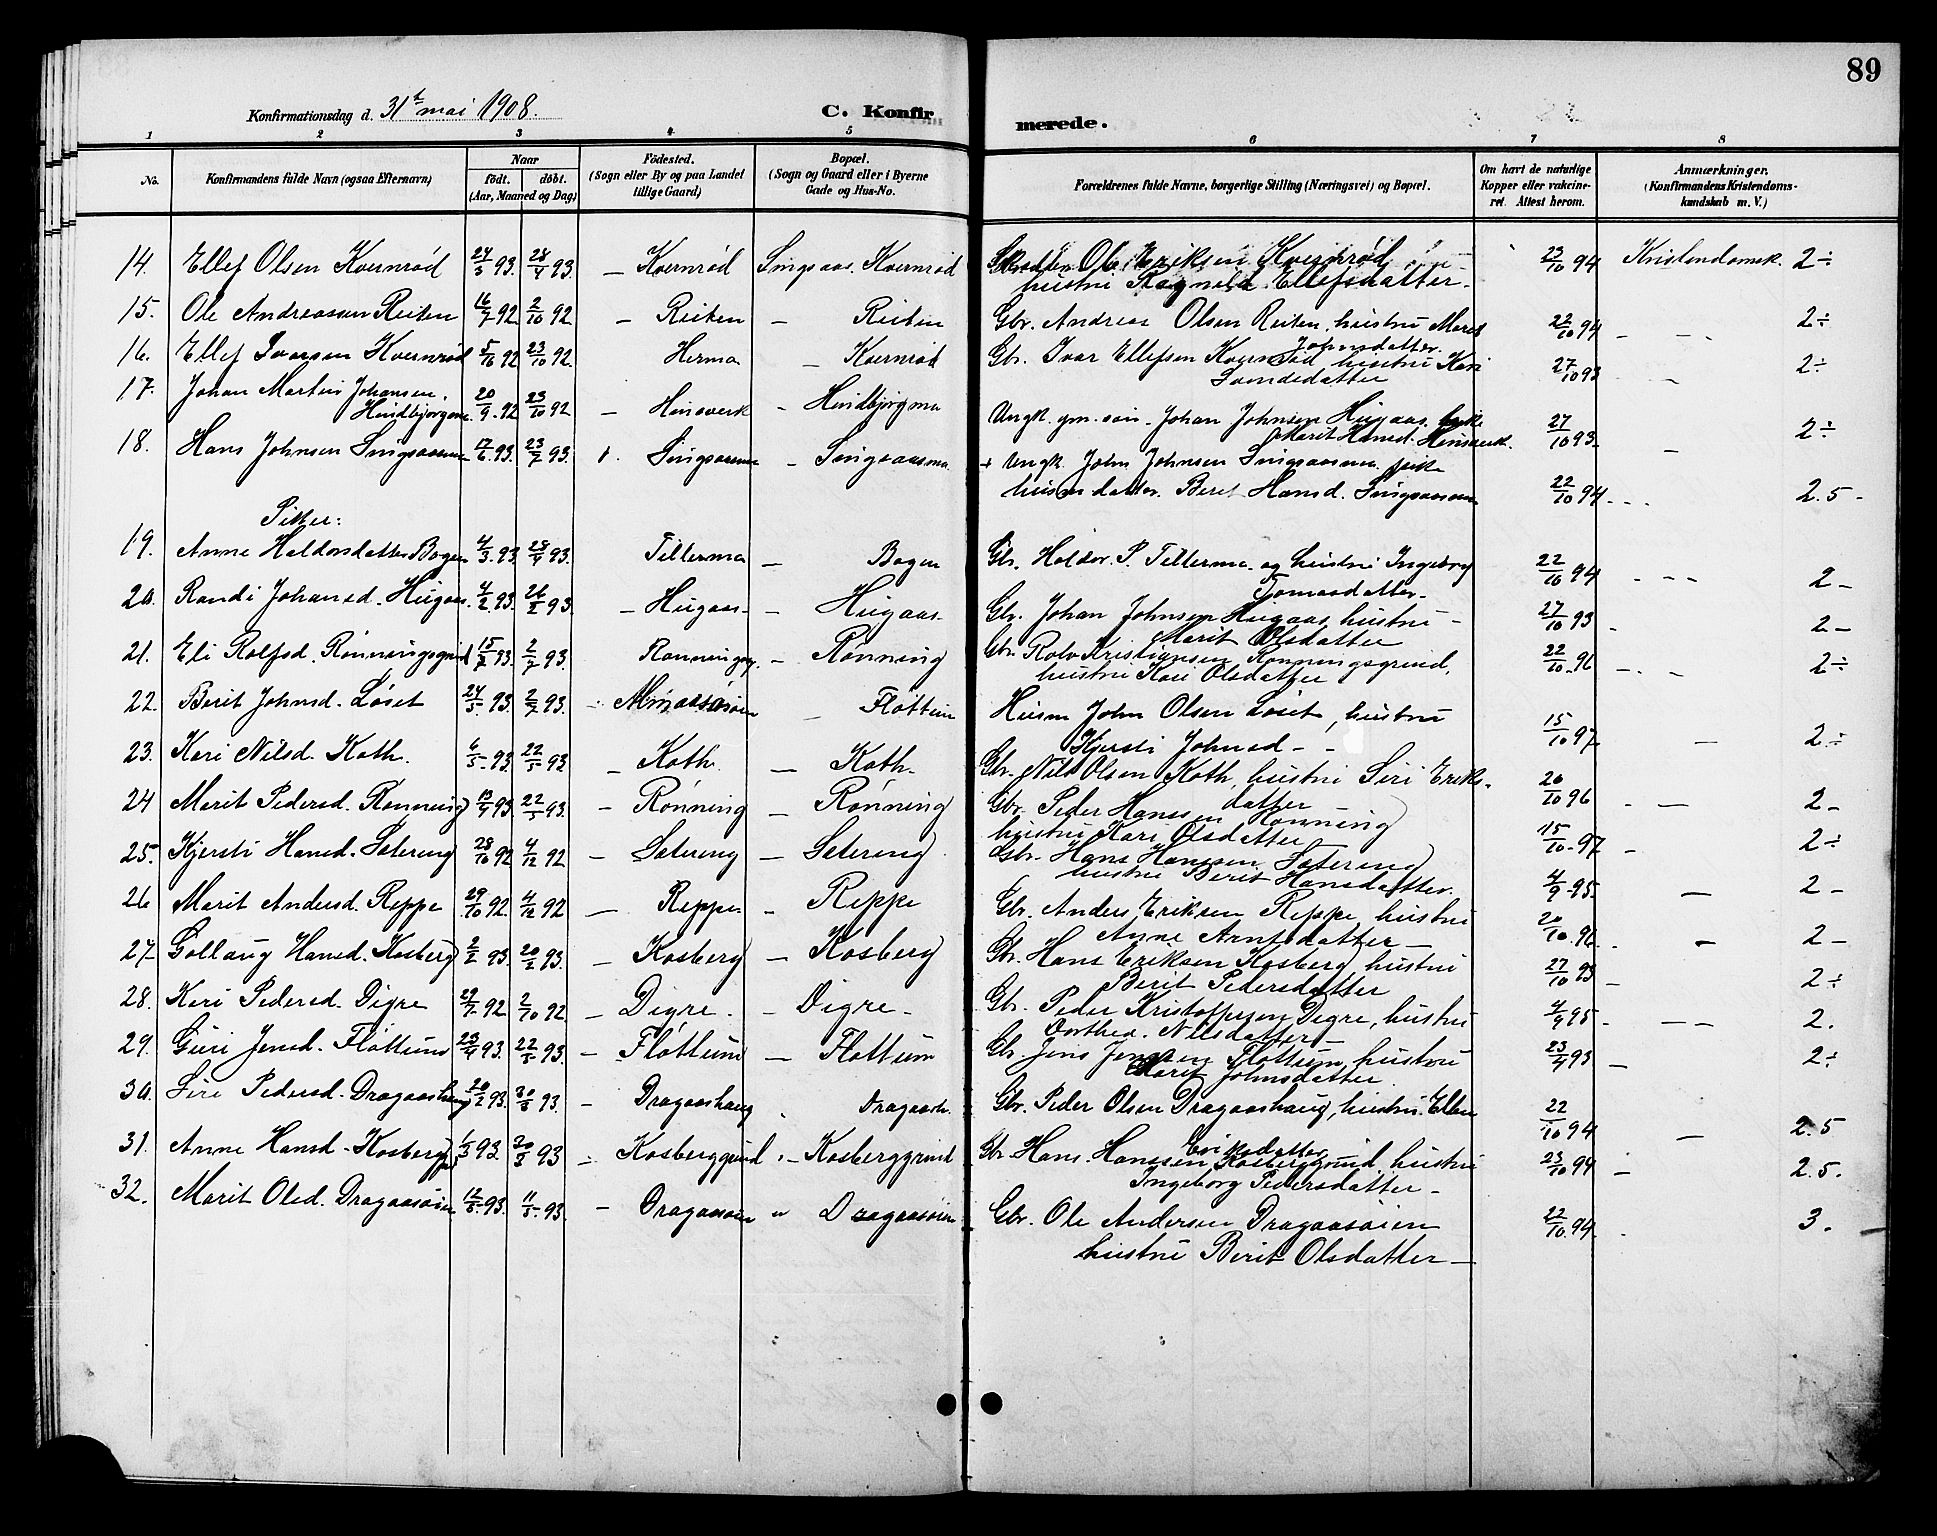 89
Konfirmationsdag d. 31te mai 1908.
C. Konfirmerede.
1 2 3 4 5 6 7 8
No.
Konfirmandens fulde Navn (ogsaa Efternavn)
Naar
født. døbt.
(Aar, Maaned og Dag)
Fødested.
(Sogn eller By og paa Landet
tillige Gaard)
Bopæl.
(Sogn og Gaard eller i Byerne
Gade og Hus-No.
Forældrenes fulde Navne, borgerlige Stilling (Næringsvei) og Bopæl.
Om havt de naturlige
Kopper eller vakcine-
ret. Attest herom.
Anmærkninger.
(Konfirmandens Kristendoms-
kundskab m. V.)
14. Ellef Olsen Kvernrød 24/3 93. 28/4 93. — Kvernrød Singsaas. Kvernrød Ole Eriksen Kvernrød 23/10 94 Kristendomsk. 2÷
hustru Ragnild Ellefsdatter.
15. Ole Andreassen Reiten 16/7 92 2/10 92 — Reiten — Reiten Gbr. Andreas Olsen Reiten, hustru Maret 22/10 94 — — 2÷
Johnsdatter.
16. Ellef Ivarsen Kvernrød 5/10 92 23/10 92. Herma — Kvernrød Gbr. Ivar Ellefsen Kvernrød hustru Kari 27/10 93 — 2÷
17. Johan Martin Johansen. Hindbjørgmo 20/9 92 23/10 92 — Hinsverk — Hindbjørgmo Ungk. gm. søn. Johan Johnsen Hugaas, pike 27/10 93. — 2÷
Marit Hansd. Hinsverk.
18. Hans Johnsen Singsaasmo 17/6 93. 23/7 93. Singsaasmo — Singsaasmo + Ungk. John Johnsen Singsaasmo. pike
husmdatter. Beret Hansd. Singsaasmo 22/10 94 - - - 2.5 -
Piker:
19. Anne Haldorsdatter Bogen 4/3 93. 28/4 93. Tillerma — Bogen Gbr. Haldor P. Tillerma og hustru Ingeborg 22/10 94 - - - 2 -
Tomasdatter.
20. Randi Johansd. Hugaas. 4/2 93. 26/2 93. — Hugaas — Hugaas. Gbr. Johan Johnsen Hugaas, hustru - 27/10 93 - 2 -
Marit Olsdatter
21. Eli Rolfsd. Rønningsgrind 15/2 93. 2/7 93. Rønningsg. — Rønning Gbr. Rolv Kristiansen Rønningsgrind, 22/10 96 - - - 2÷
hustru Kari Olsdatter
22. Berit Johnsd. Løset 24/5 93. 2/7 93. — Fløttum Husm John Olsen Løset, hustru 15/10 97 — 2÷
Kjersti Johnsd -
23. Kari Nilsd. Koth. 6/5 93. 22/5 93 — Koth. — Koth. Gbr. Nils Olsen Koth, hustru Siri Eriks- 20/10 96 - — 2 -
datter
24 Marit Pedersd. Rønning 13/4 93. 22/5 93. — Rønning Rønning Gbr. Peder Hanssen Rønning 15/10 97 - 2÷
hustru Kari Olsdatter
25. Kjersti Hansd. Sætereng 28/10 92 4/12 92 — Sætereng — Setereng Gbr. Hans Hanssen Sætereng 4/9 95. — 2 -
hustru Berit Hansdatter.
26 Marit Andersd. Reppe 29/10 92. 4/12 92 — Reppe - Reppe Gbr. Anders Eriksen Reppe, hustru 20/10 96 - 2 -
Anne Arntsdatter —
27 Gollaug Hansd. Kosberg 2/2 93. 20/2 93. — Kosberg — Kosberg Gbr. Hans Eriksen Kosberg, hustru 27/10 93 — 2÷
Berit Pedersdatter
28. Kari Pedersd. Digre 29/7 92 2/10 92. — Digre. — Digre - Gbr. Peder Kristoffersen Digre, hustru 4/9 95. — — 2.
Dorthea Nilsdatter —
29. Guri Jensd. Fløttum 23/4 93. 22/5 93. — Fløttum — Fløttum Gbr. Jens Jenssen Fløttum, hustru 23/9 93 — 2÷
Marit Johnsdatter.
30. Siri Pedersd. Dragaashaug 20/2 93. 30/3 93. — Dragaashaug Dragaash. Gbr. Peder Olsen Dragaashaug, hustru Ellen 22/10 94 — 2.5
Eriksdatter
31. Anne Hansd. Kosberg 1/3 93. 30/3 93 — Kosberggrind — Kosberggrind Gbr. Hans Hanssen Kosberggrind, hustru 23/10 94 — 2.5.
Ingeborg Pedersdatter -
32. Marit Olsd. Dragaasøien 12/3 93. 11/5 93. — Dragaasøien " Dragaasøien Gbr. Ole Andersen Dragaasøien 22/10 94. 3.
hustru Berit Olsdatter —